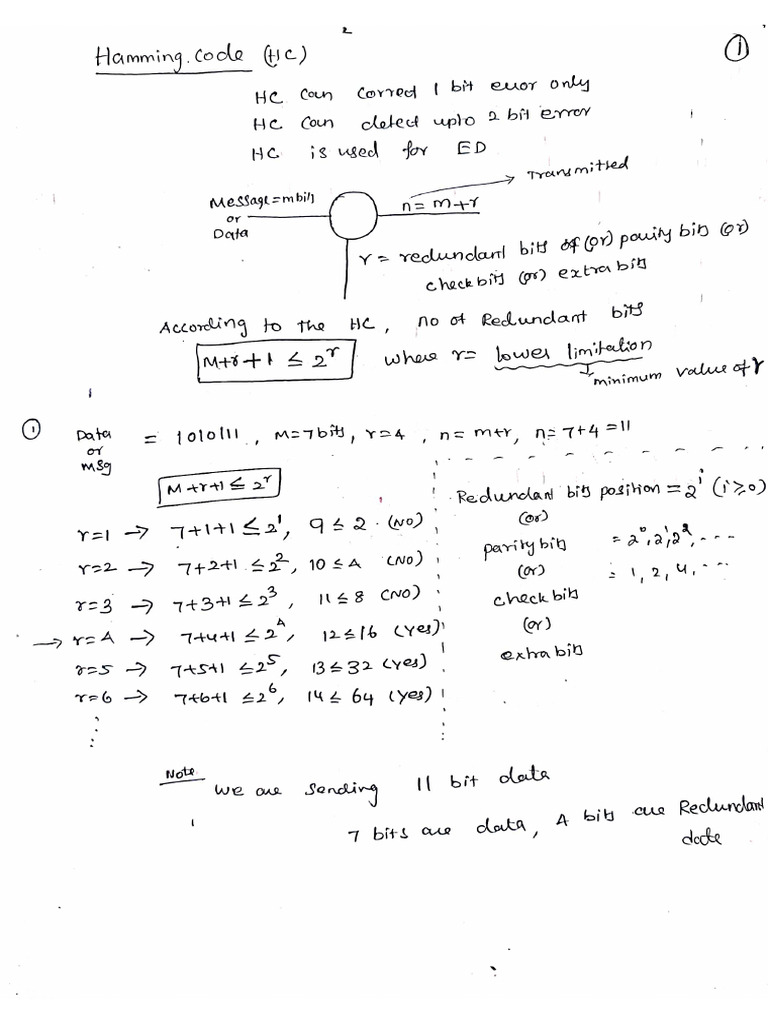 2
Hamming.code (HC)
①
HC can correct 1 bit error only
HC can detect upto 2 bit error
HC is used for ED
Message = m bits
or
Data
n = m+r
Transmitted
r = redundant bits of (or) parity bits (or)
check bits (or) extra bits
According to the HC, no of Redundant bits
M+r+1 ≤ 2^r where r= lower limitation
minimum value of r
① Data or msg = 1010111, M=7bits, r=4, n= m+r, n= 7+4 =11
M+r+1 ≤ 2^r
r=1 → 7+1+1 ≤ 2^1, 9 ≤ 2 (NO)
r=2 → 7+2+1 ≤ 2^2, 10 ≤ 4 (NO)
r=3 → 7+3+1 ≤ 2^3, 11 ≤ 8 (NO)
→ r=4 → 7+4+1 ≤ 2^4, 12 ≤ 16 (Yes)
r=5 → 7+5+1 ≤ 2^5, 13 ≤ 32 (Yes)
r=6 → 7+6+1 ≤ 2^6, 14 ≤ 64 (Yes)
Redundant bits position = 2^i (i ≥ 0)
(or)
parity bits = 2^0, 2^1, 2^2, ...
(or) = 1, 2, 4, ...
check bits
(or)
extra bits
Note
We are sending 11 bit data
7 bits are data, 4 bits are Redundant
date